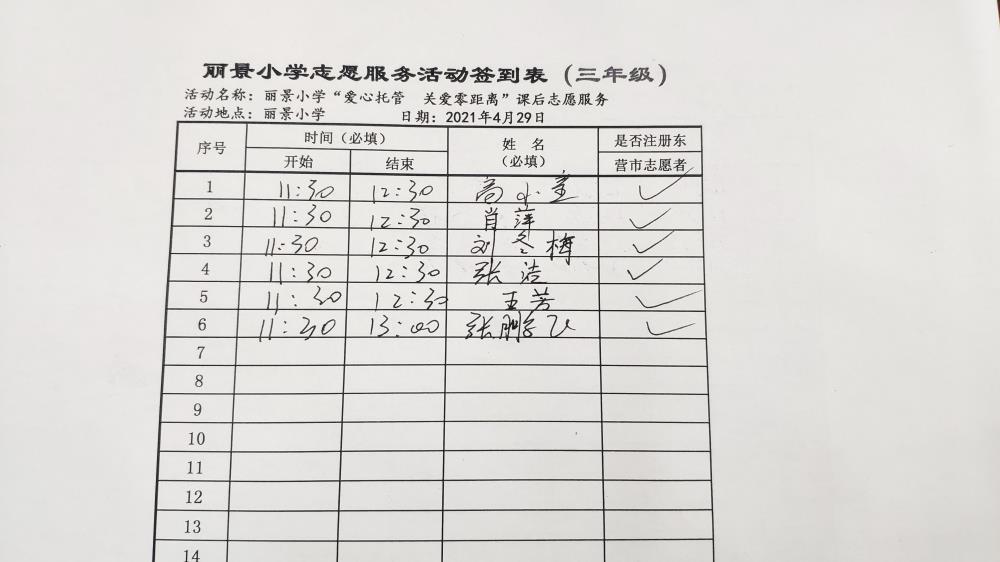 丽景小学志愿服务活动签到表（三年级）
活动名称：丽景小学“爱心托管 关爱零距离”课后志愿服务
活动地点：丽景小学 日期：2021年4月29日
序号 时间（必填） 姓 名 （必填） 是否注册东营市志愿者
开始 结束
1 11:30 12:30 高小童 ✓
2 11:30 12:30 肖萍 ✓
3 11:30 12:30 刘冬梅 ✓
4 11:30 12:30 张洁 ✓
5 11:30 12:30 王芳 ✓
6 11:30 13:00 张鹏飞 ✓
7
8
9
10
11
12
13
14